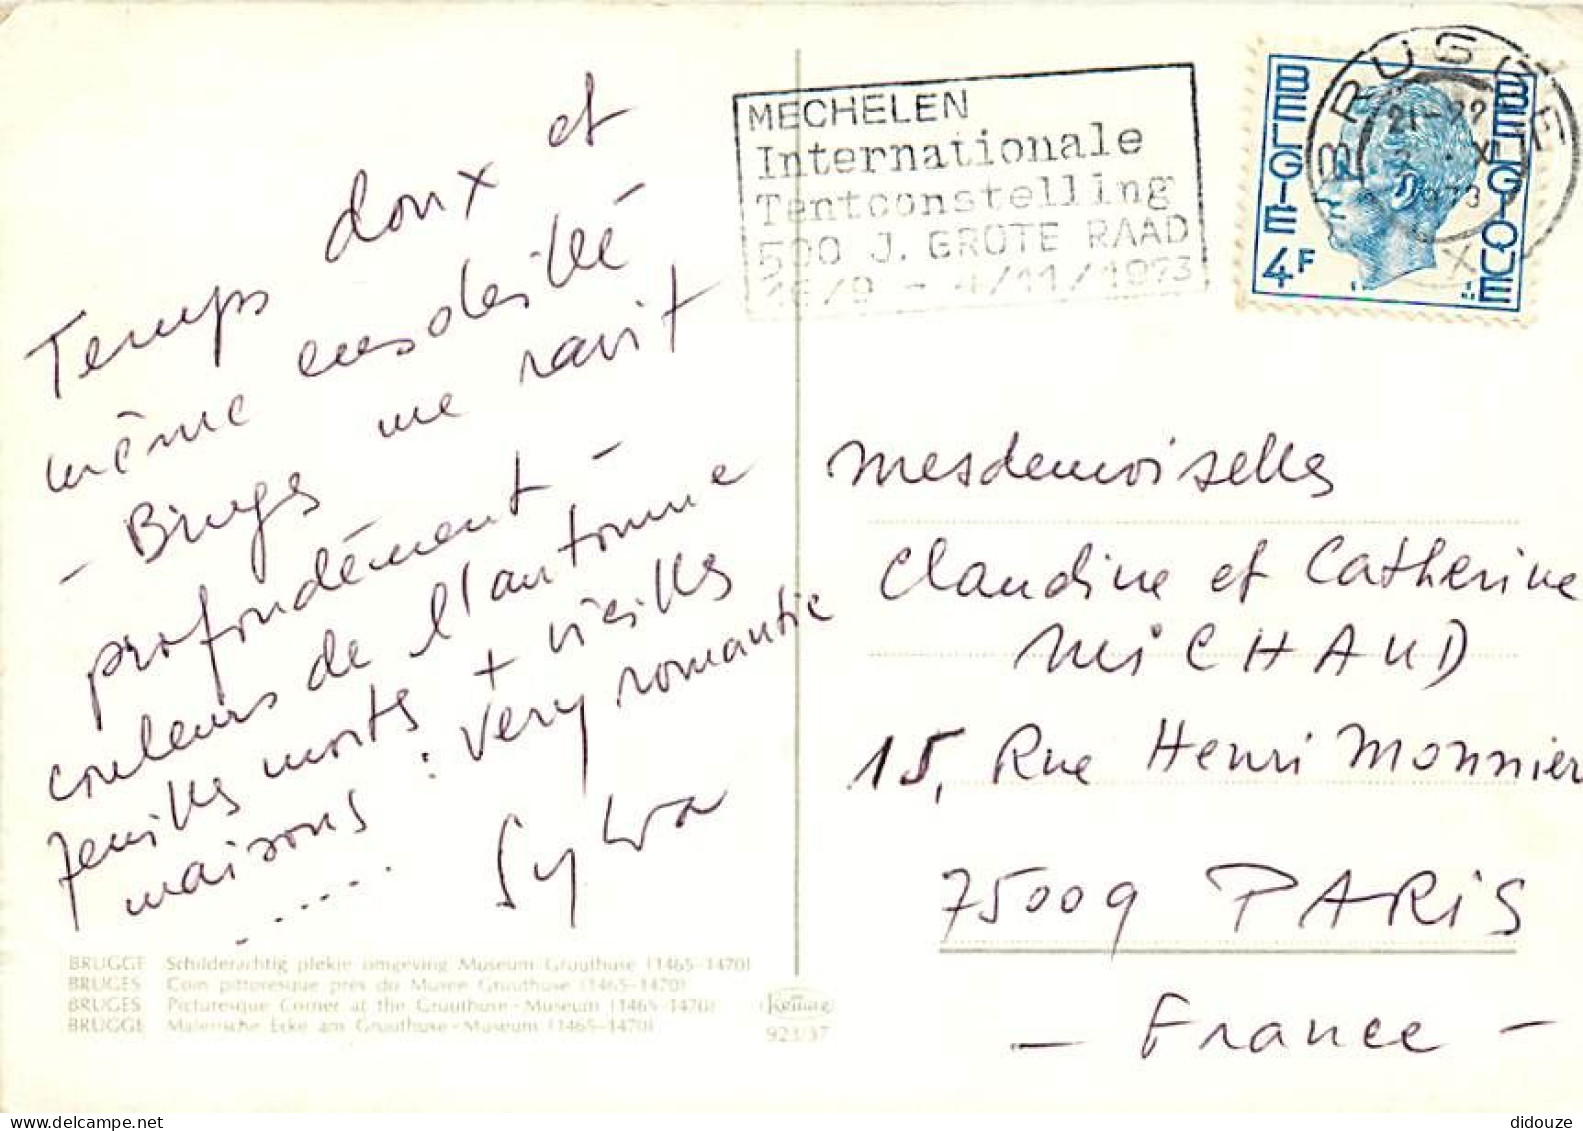 Temps doux et
même ensoleillé
- Bruges me ravit
profondément -
couleurs de l'automne
feuilles mortes + vieilles
maisons : very romantic
.....
Sylva
BRUGGE Schilderachtig plekje omgeving Museum Gruuthuse (1465-1470)
BRUGES Coin pittoresque près du Musée Gruuthuse (1465-1470)
BRUGES Picturesque Corner at the Gruuthuse-Museum (1465-1470)
BRÜGGE Malerische Ecke am Gruuthuse-Museum (1465-1470)
923/37
MECHELEN
Internationale
Tentoonstelling
500 J. GROTE RAAD
16/9 - 4/11/1973
BELGIE 4F
BELGIQUE
BRUGGE
21-22
X
1973
Mesdemoiselles
Claudine et Catherine
MICHAUD
15, Rue Henri Monnier
75009 PARIS
- France -
didouze